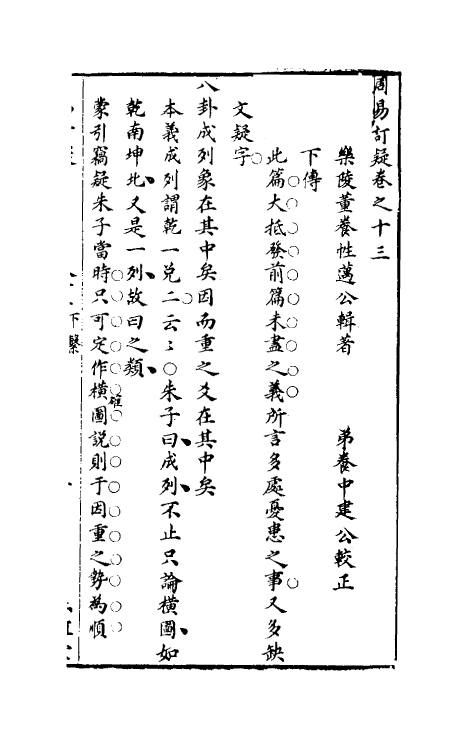 周易訂疑卷之十三
樂陵董養性邁公輯著　弟養中建公較正
下傳
此篇大抵發前篇未盡之義所言多處憂患之事又多缺
文疑字
八卦成列象在其中矣因而重之爻在其中矣
本義成列謂乾一兌二云〻○朱子曰成列不止只論橫圖如
乾南坤北又是一列故曰之類
蒙引竊疑朱子當時只可定作橫圖說則于因重之勢為順
下繫